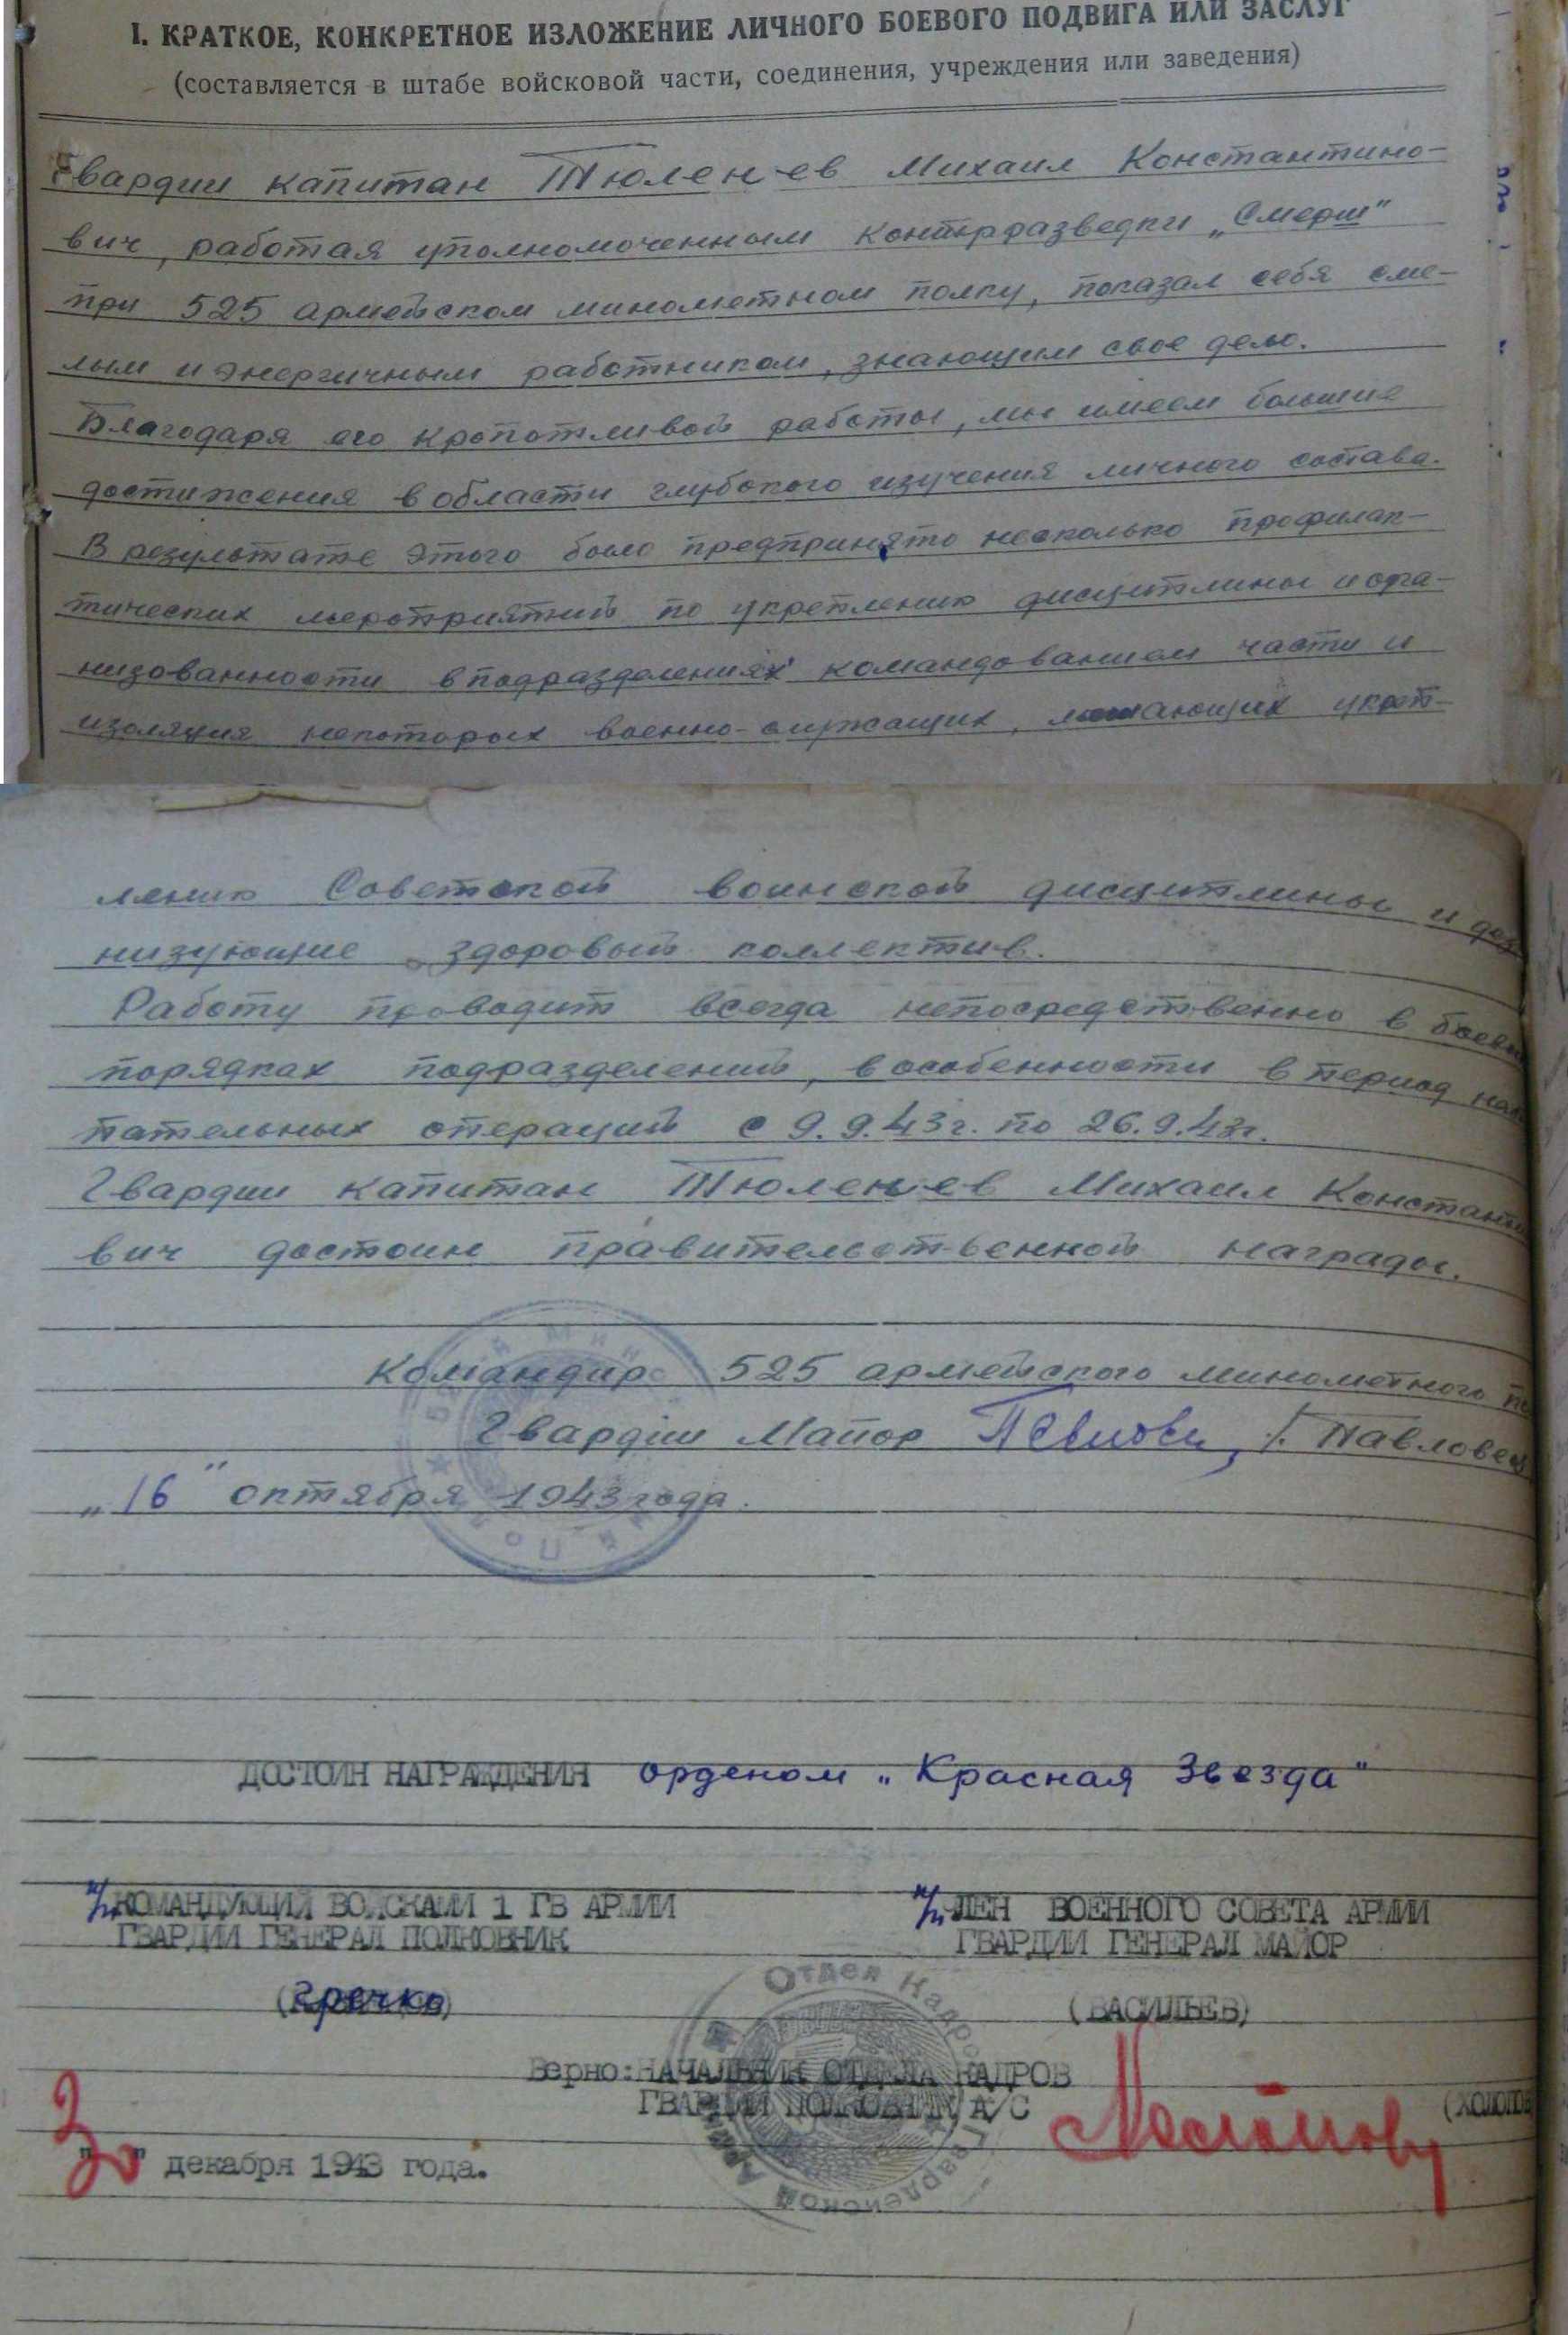 I. КРАТКОЕ, КОНКРЕТНОЕ ИЗЛОЖЕНИЕ ЛИЧНОГО БОЕВОГО ПОДВИГА ИЛИ ЗАСЛУГ
(составляется в штабе войсковой части, соединения, учреждения или заведения)
Гвардии капитан Тюленев Михаил Константино-
вич, работая уполномоченным контрразведки „Смерш"
при 525 армейском минометном полку, показал себя сме-
лым и энергичным работником, знающим свое дело.
Благодаря его кропотливой работы, мы имеем большие
достижения в области глубокого изучения личного состава.
В результате этого было предпринято несколько профилак-
тических мероприятий по укреплению дисциплины и орга-
низованности в подразделениях командованием части и
изоляция некоторых военно-служащих, мешающих укреп-
лению Советской воинской дисциплины и дез
низующие здоровый коллектив.
Работу проводит всегда непосредственно в боевы
порядках подразделений, в особенности в период нас
пательных операций с 9.9.43г. по 26.9.43г.
Гвардии капитан Тюленев Михаил Константи
вич достоин правительственной награды.
Командир 525 армейского минометного по
Гвардии Майор /Павловец
„16" октября 1943 года.
ДОСТОИН НАГРАЖДЕНИЯ орденом „Красная Звезда"
п/п КОМАНДУЮЩИЙ ВОЙСКАМИ 1 ГВ АРМИИ
ГВАРДИИ ГЕНЕРАЛ ПОЛКОВНИК
Гречко
п/п ЧЛЕН ВОЕННОГО СОВЕТА АРМИИ
ГВАРДИИ ГЕНЕРАЛ МАЙОР
(ВАСИЛЬЕВ)
Отдел Кадров Гвардейской Армии
Верно: НАЧАЛЬНИК ОТДЕЛА КАДРОВ
ГВАРДИИ ПОЛКОВНИК А/С
(ХОЛОПОВ
"30" декабря 1943 года.